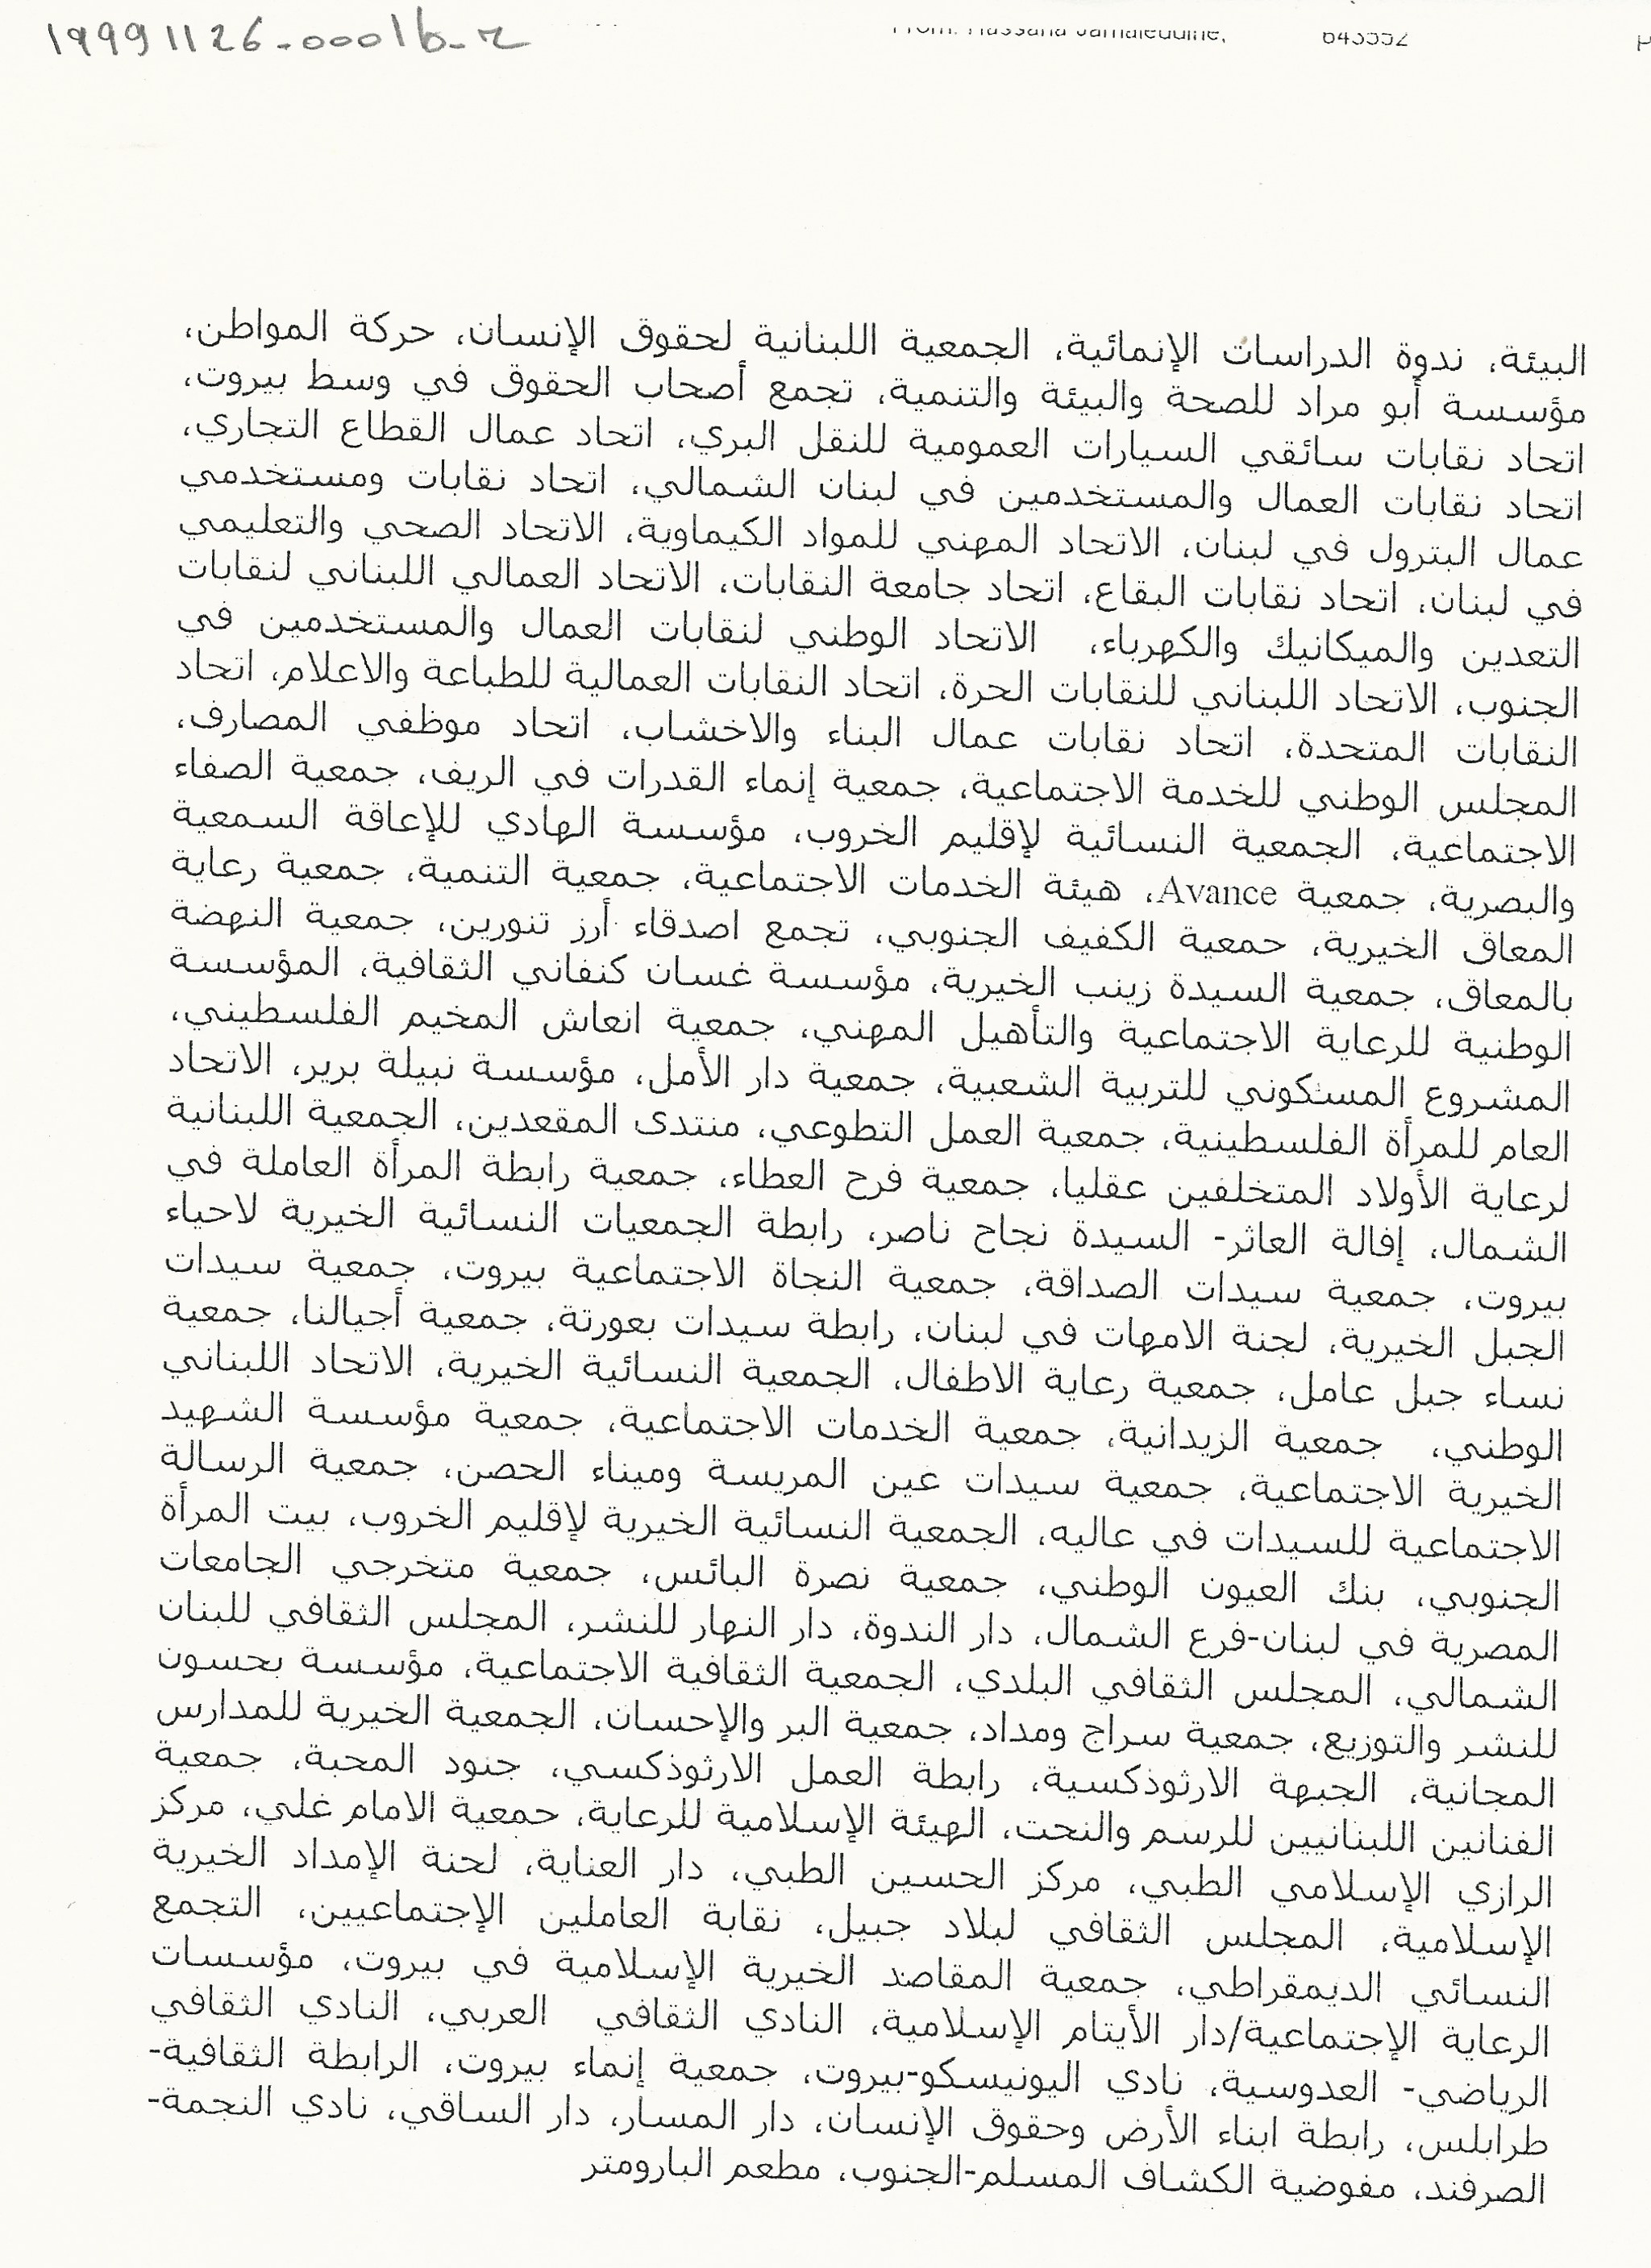 19991126-0001b-r
From: Hassana Jamaleddine, 643552
البيئة، ندوة الدراسات الإنمائية، الجمعية اللبنانية لحقوق الإنسان، حركة المواطن،
مؤسسة أبو مراد للصحة والبيئة والتنمية، تجمع أصحاب الحقوق في وسط بيروت،
اتحاد نقابات سائقي السيارات العمومية للنقل البري، اتحاد عمال القطاع التجاري،
اتحاد نقابات العمال والمستخدمين في لبنان الشمالي، اتحاد نقابات ومستخدمي
عمال البترول في لبنان، الاتحاد المهني للمواد الكيماوية، الاتحاد الصحي والتعليمي
في لبنان، اتحاد نقابات البقاع، اتحاد جامعة النقابات، الاتحاد العمالي اللبناني لنقابات
التعدين والميكانيك والكهرباء، الاتحاد الوطني لنقابات العمال والمستخدمين في
الجنوب، الاتحاد اللبناني للنقابات الحرة، اتحاد النقابات العمالية للطباعة والاعلام، اتحاد
النقابات المتحدة، اتحاد نقابات عمال البناء والاخشاب، اتحاد موظفي المصارف،
المجلس الوطني للخدمة الاجتماعية، جمعية إنماء القدرات في الريف، جمعية الصفاء
الاجتماعية، الجمعية النسائية لإقليم الخروب، مؤسسة الهادي للإعاقة السمعية
والبصرية، جمعية Avance، هيئة الخدمات الاجتماعية، جمعية التنمية، جمعية رعاية
المعاق الخيرية، جمعية الكفيف الجنوبي، تجمع اصدقاء أرز تنورين، جمعية النهضة
بالمعاق، جمعية السيدة زينب الخيرية، مؤسسة غسان كنفاني الثقافية، المؤسسة
الوطنية للرعاية الاجتماعية والتأهيل المهني، جمعية انعاش المخيم الفلسطيني،
المشروع المسكوني للتربية الشعبية، جمعية دار الأمل، مؤسسة نبيلة برير، الاتحاد
العام للمرأة الفلسطينية، جمعية العمل التطوعي، منتدى المقعدين، الجمعية اللبنانية
لرعاية الأولاد المتخلفين عقليا، جمعية فرح العطاء، جمعية رابطة المرأة العاملة في
الشمال، إقالة العاثر- السيدة نجاح ناصر، رابطة الجمعيات النسائية الخيرية لاحياء
بيروت، جمعية سيدات الصداقة، جمعية النجاة الاجتماعية بيروت، جمعية سيدات
الجبل الخيرية، لجنة الامهات في لبنان، رابطة سيدات بعورتة، جمعية أجيالنا، جمعية
نساء جبل عامل، جمعية رعاية الاطفال، الجمعية النسائية الخيرية، الاتحاد اللبناني
الوطني، جمعية الزيدانية، جمعية الخدمات الاجتماعية، جمعية مؤسسة الشهيد
الخيرية الاجتماعية، جمعية سيدات عين المريسة وميناء الحصن، جمعية الرسالة
الاجتماعية للسيدات في عاليه، الجمعية النسائية الخيرية لإقليم الخروب، بيت المرأة
الجنوبي، بنك العيون الوطني، جمعية نصرة البائس، جمعية متخرجي الجامعات
المصرية في لبنان-فرع الشمال، دار الندوة، دار النهار للنشر، المجلس الثقافي للبنان
الشمالي، المجلس الثقافي البلدي، الجمعية الثقافية الاجتماعية، مؤسسة بحسون
للنشر والتوزيع، جمعية سراج ومداد، جمعية البر والإحسان، الجمعية الخيرية للمدارس
المجانية، الجبهة الارثوذكسية، رابطة العمل الارثوذكسي، جنود المحبة، جمعية
الفنانين اللبنانيين للرسم والنحت، الهيئة الإسلامية للرعاية، جمعية الامام علي، مركز
الرازي الإسلامي الطبي، مركز الحسين الطبي، دار العناية، لجنة الإمداد الخيرية
الإسلامية، المجلس الثقافي لبلاد جبيل، نقابة العاملين الإجتماعيين، التجمع
النسائي الديمقراطي، جمعية المقاصد الخيرية الإسلامية في بيروت، مؤسسات
الرعاية الإجتماعية/دار الأيتام الإسلامية، النادي الثقافي العربي، النادي الثقافي
الرياضي- العدوسية، نادي اليونيسكو-بيروت، جمعية إنماء بيروت، الرابطة الثقافية-
طرابلس، رابطة ابناء الأرض وحقوق الإنسان، دار المسار، دار الساقي، نادي النجمة-
الصرفند، مفوضية الكشاف المسلم-الجنوب، مطعم البارومتر